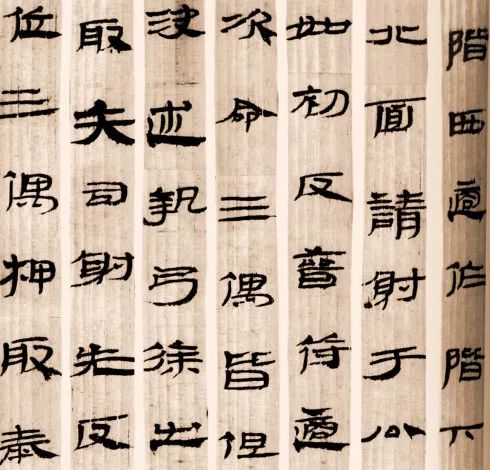 階西適作階下
北面請射于公
如初反晉苻適
次命三偶皆但
決述執弓徐出
取矢司射先反
位三偶柙取